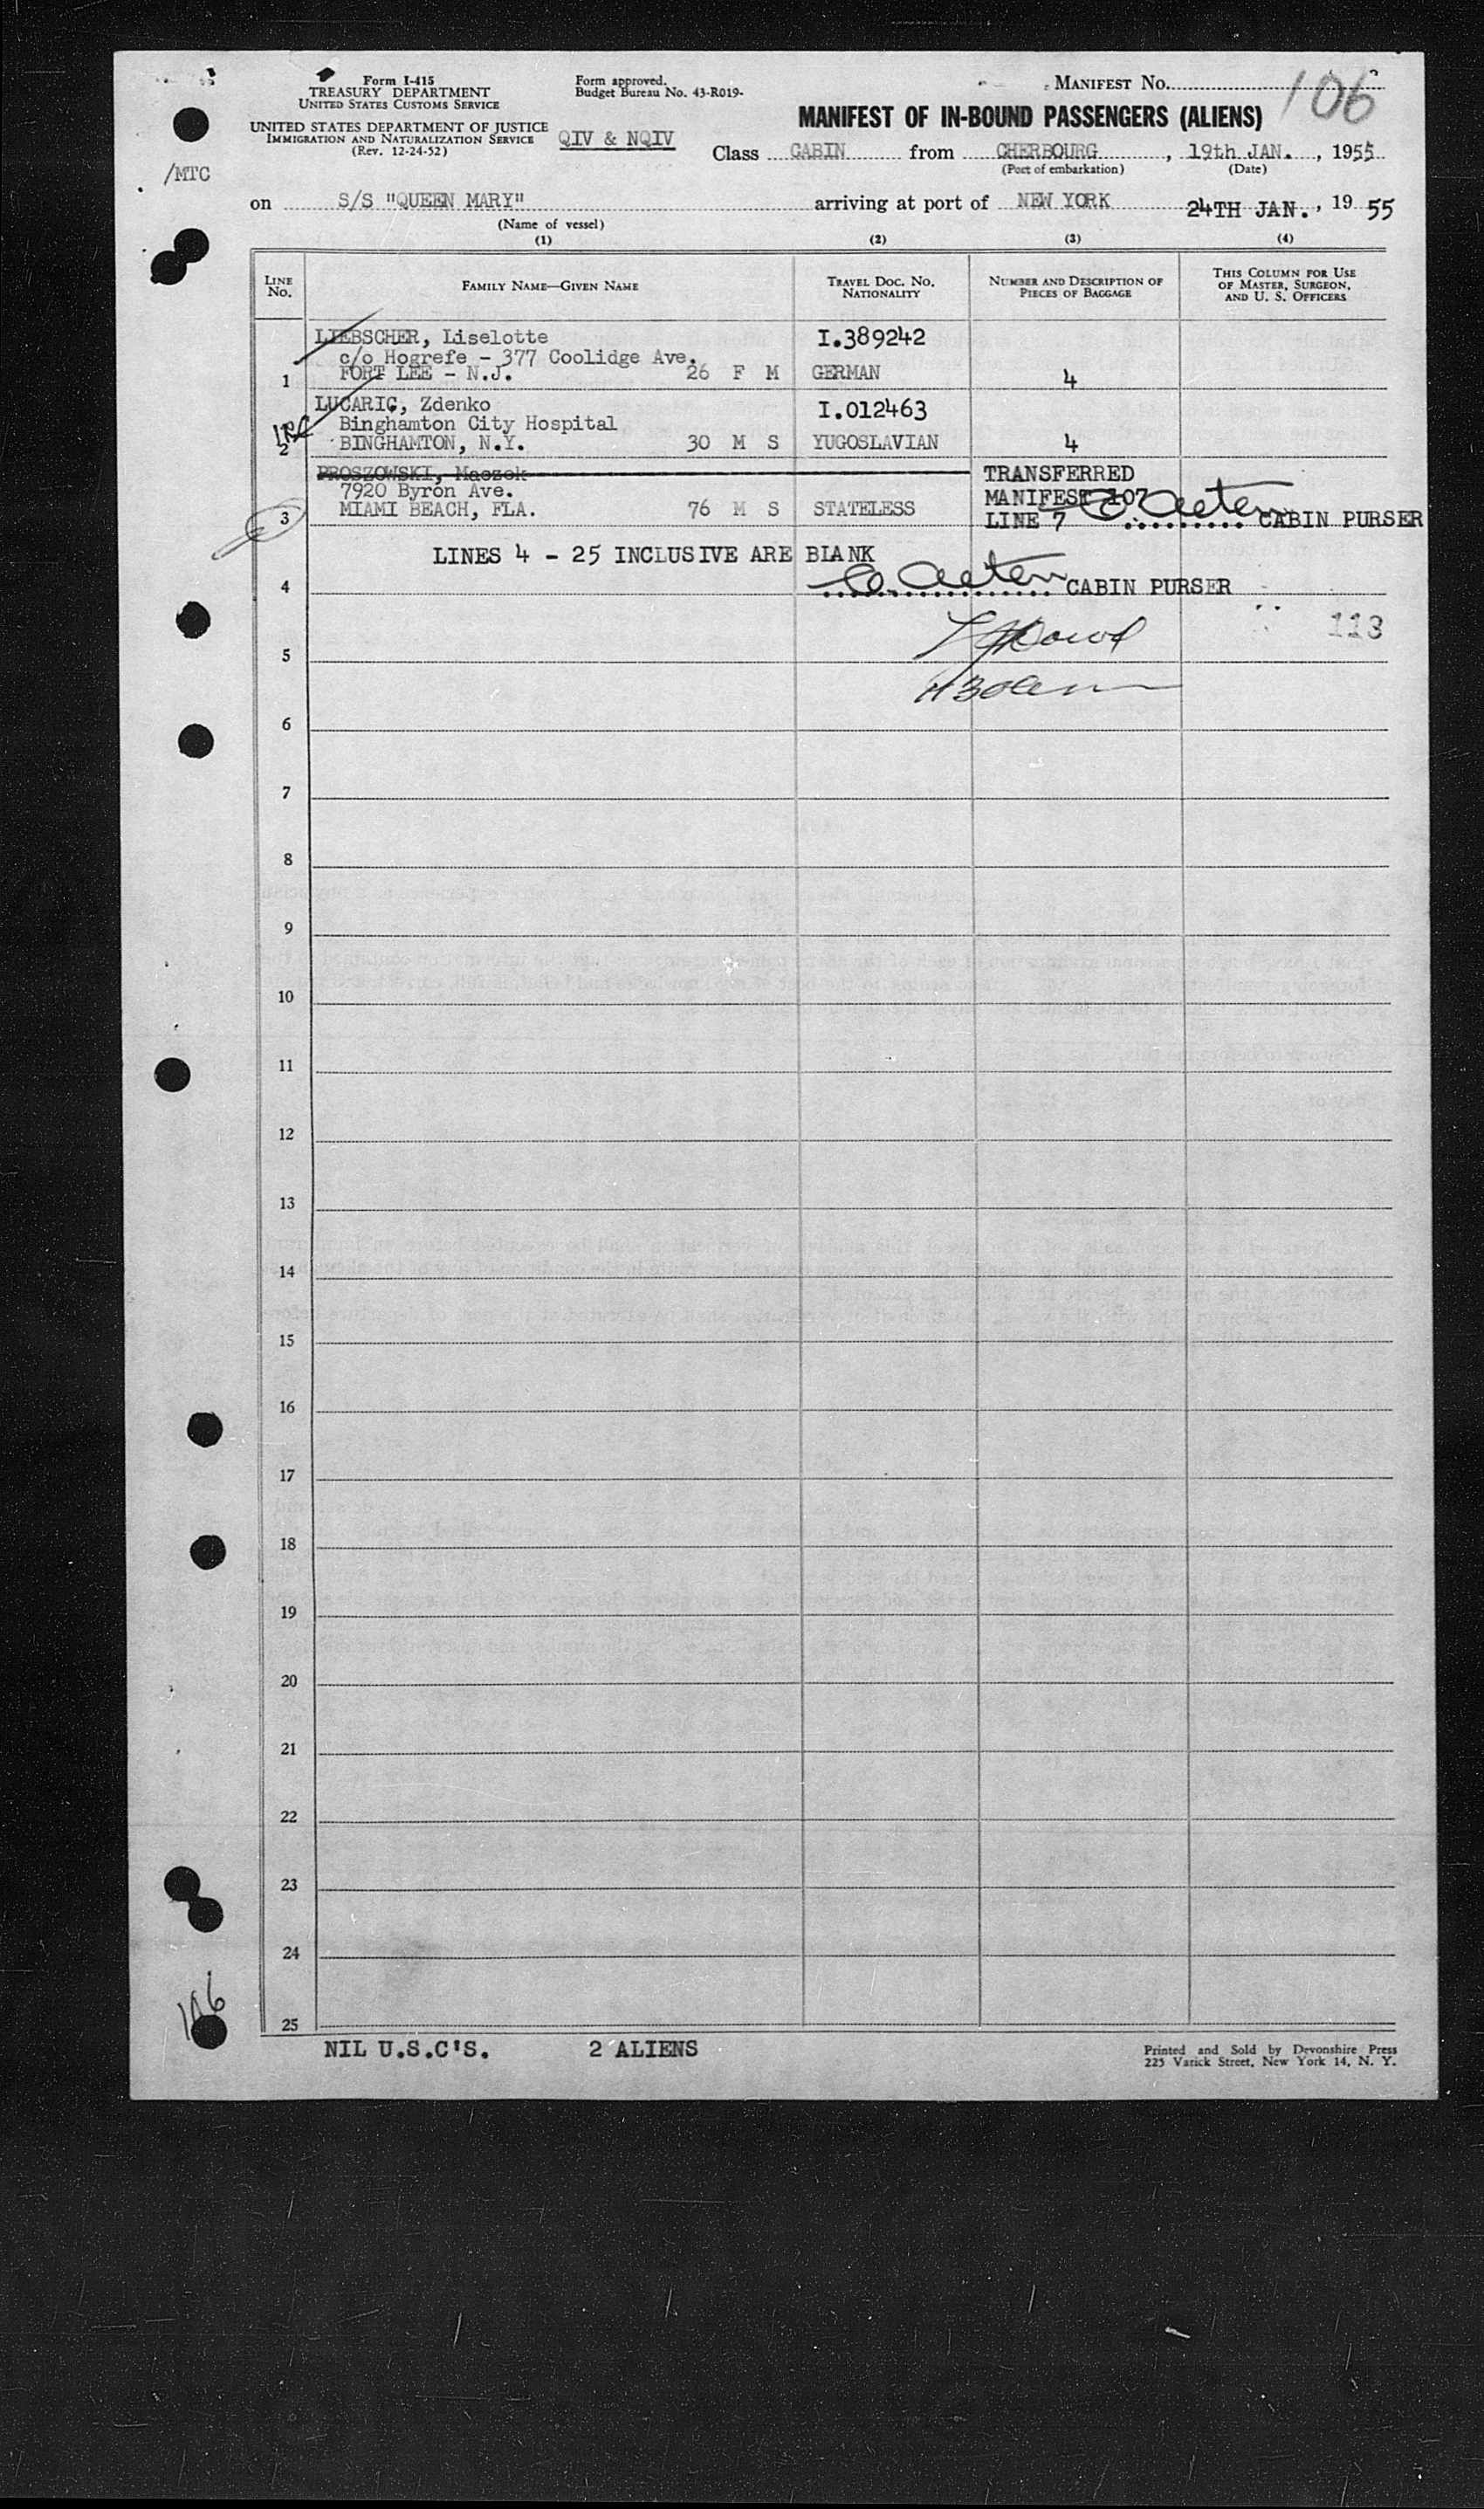 Form I-415
TREASURY DEPARTMENT
UNITED STATES CUSTOMS SERVICE
UNITED STATES DEPARTMENT OF JUSTICE
IMMIGRATION AND NATURALIZATION SERVICE
(Rev. 12-24-52)
Form approved.
Budget Bureau No. 43-R019-
QIV & NQIV
MANIFEST NO. 106
MANIFEST OF IN-BOUND PASSENGERS (ALIENS)
Class CABIN from CHERBOURG, 19th JAN., 1955
(Port of embarkation) (Date)
/MTC
on S/S "QUEEN MARY" arriving at port of NEW YORK 24TH JAN., 19 55
(Name of vessel)
(1) (2) (3) (4)
LINE NO. FAMILY NAME—GIVEN NAME TRAVEL DOC. NO. NATIONALITY NUMBER AND DESCRIPTION OF PIECES OF BAGGAGE THIS COLUMN FOR USE OF MASTER, SURGEON, AND U. S. OFFICERS
LIEBSCHER, Liselotte I.389242
c/o Hogrefe - 377 Coolidge Ave.
1 FORT LEE - N.J. 26 F M GERMAN 4
LUCARIC, Zdenko I.012463
Binghamton City Hospital
2 BINGHAMTON, N.Y. 30 M S YUGOSLAVIAN 4
PROSZOWSKI, Maczek TRANSFERRED
7920 Byron Ave. MANIFEST 107
3 MIAMI BEACH, FLA. 76 M S STATELESS LINE 7 CABIN PURSER
LINES 4 - 25 INCLUSIVE ARE BLANK
4 CABIN PURSER
113
5
6
7
8
9
10
11
12
13
14
15
16
17
18
19
20
21
22
23
24
106
25
NIL U.S.C'S. 2 ALIENS
Printed and Sold by Devonshire Press
225 Varick Street, New York 14, N. Y.